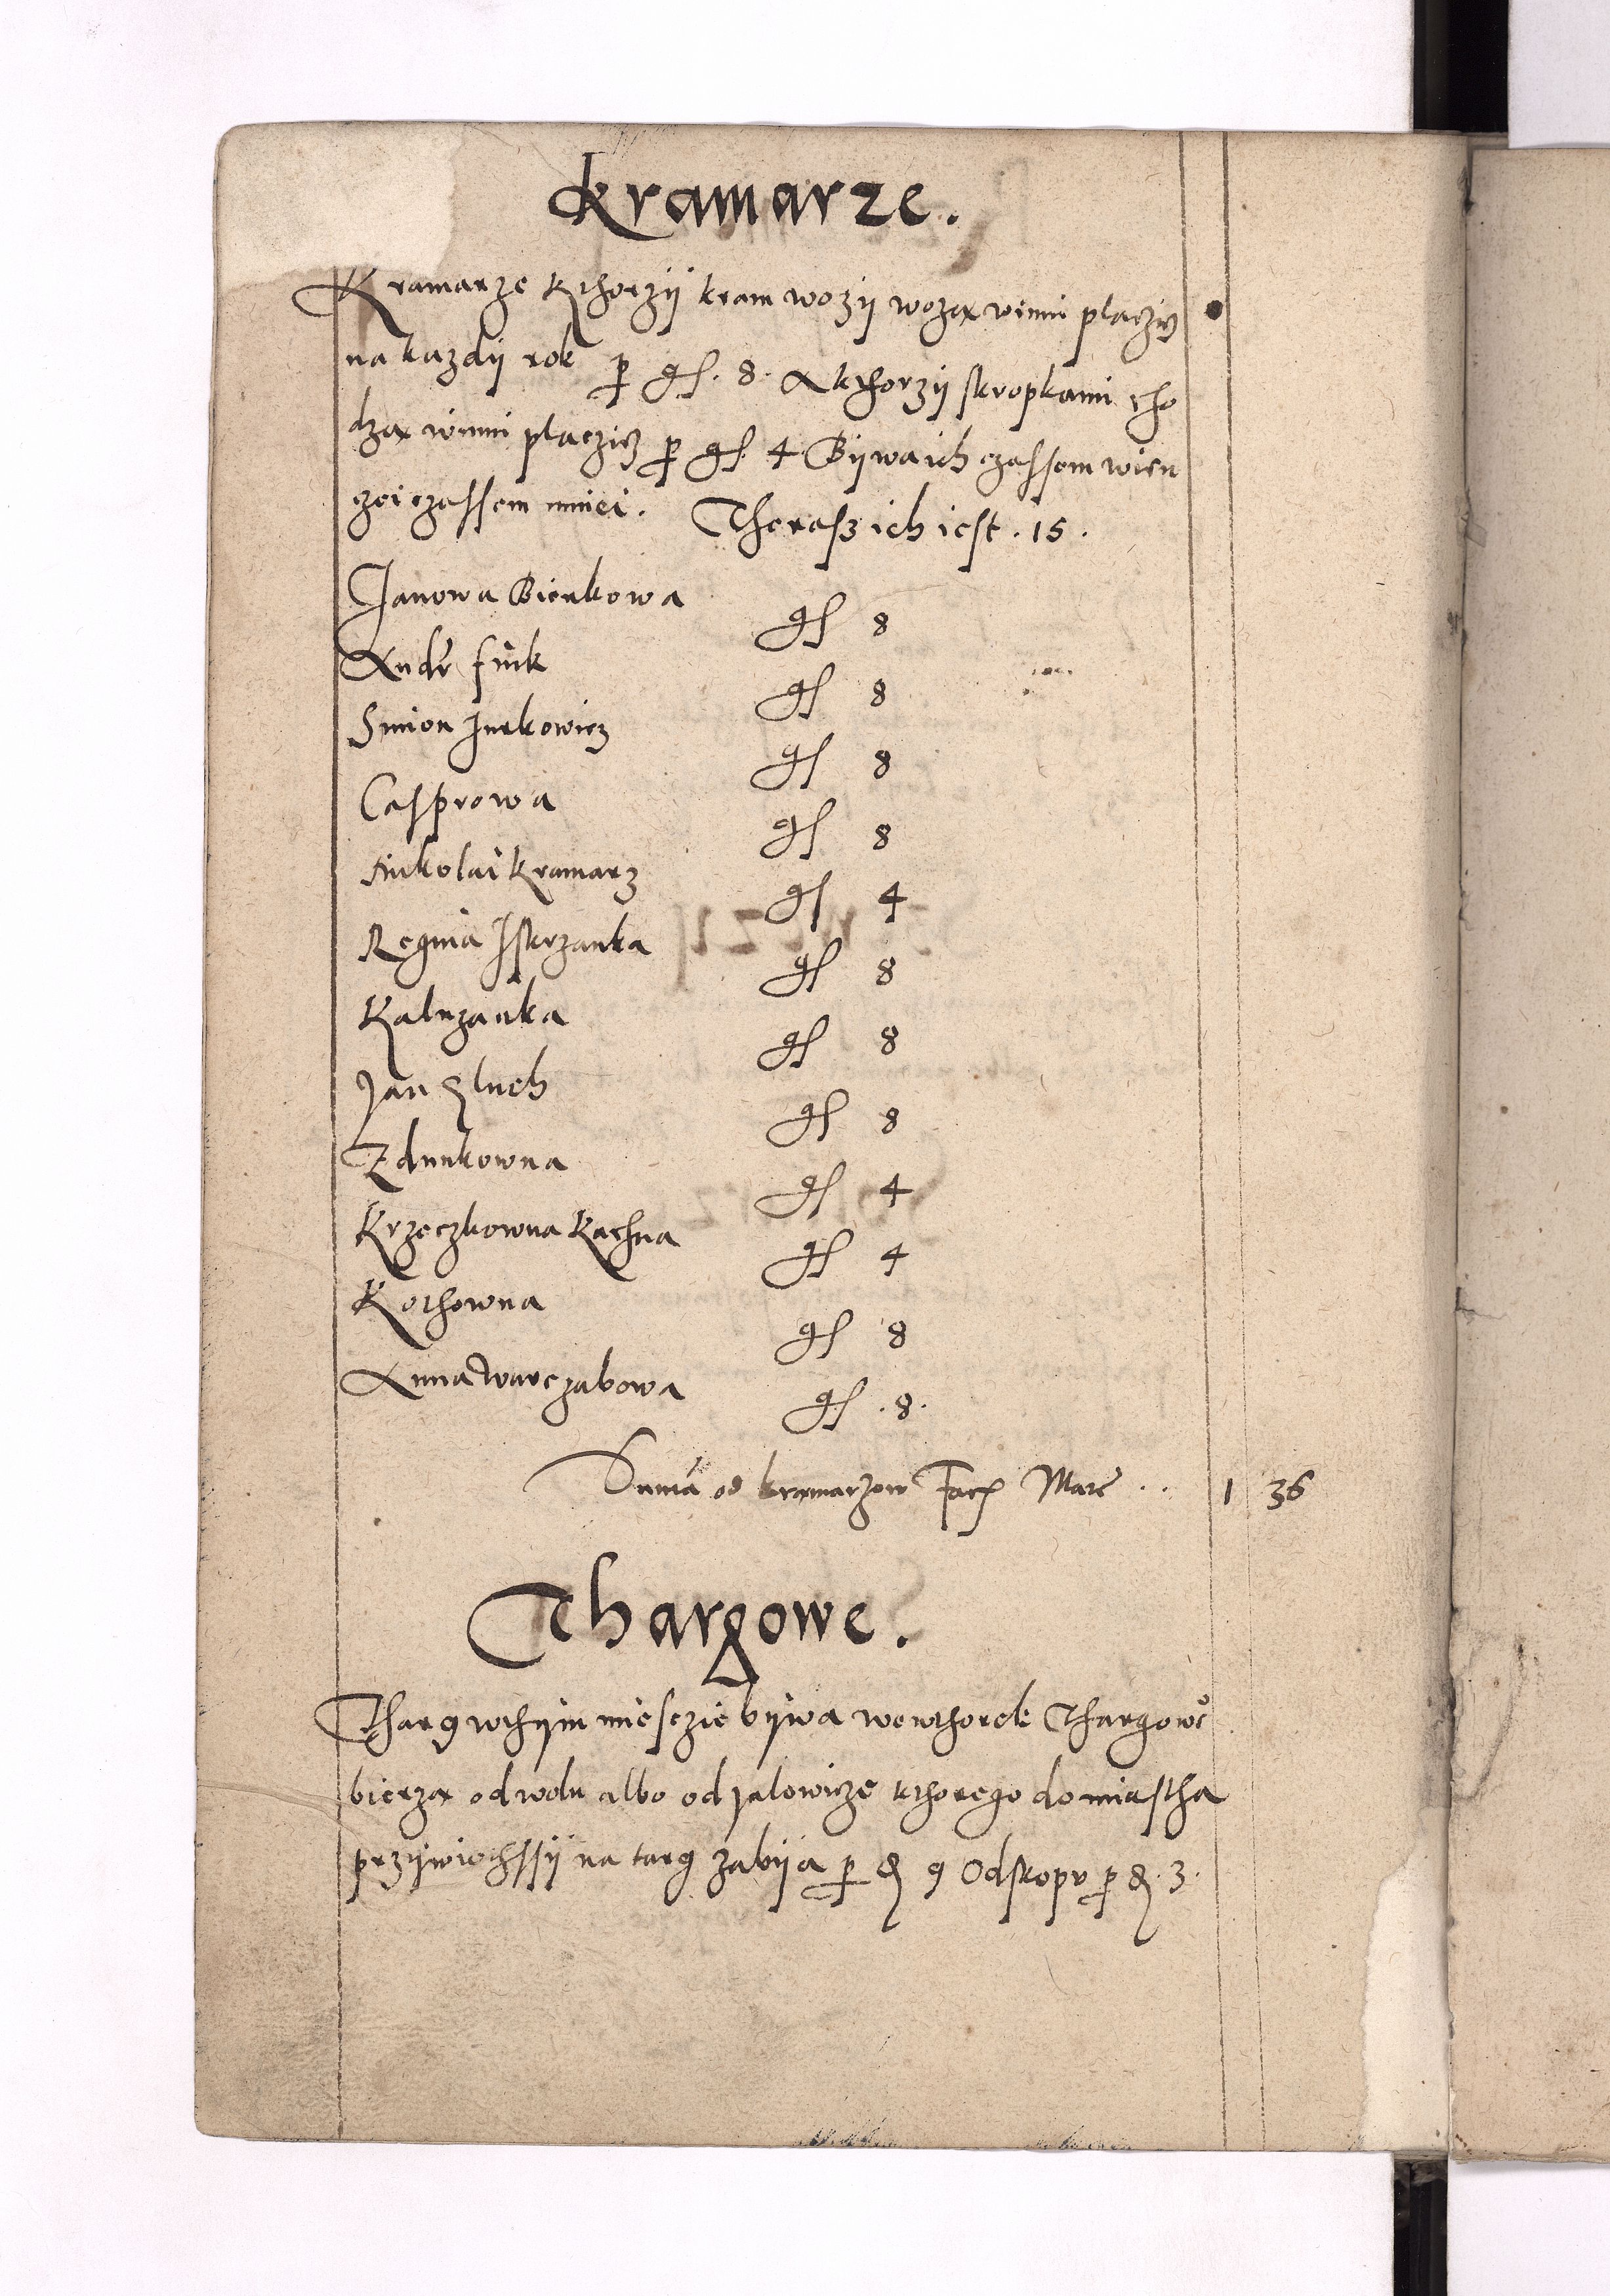 Kramarze.
Kramarze kthorzÿ kram wozÿ wożą winni placzicz
na kazdÿ rok per gſ. 8. A kthorzÿ skropkami cho
dzą winni placzicz per gſ 4 Bÿwa ich czassem wien
czei czassem mniei. Therasz ich iest . 15 .
Janowa Bienkowa gſ 8
Andr̃ fink gſ 8
Simon Jurkowicz gſ 8
Casprowa gſ 8
Mikolai Kramarz gſ 4
Regina Iskrzanka gſ 8
Kaluzanka gſ 8
Jan Gluch gſ 8
Zdunkowna gſ 4
Krzeczkowna Kachna gſ 4
Kothowna gſ 8
Anna Warczabowa gſ . 8 .
Suma̅ od kramarzow Facz Marc . . 1 36
Thargowe.
Tharg wthÿm miesczie bÿwa wewthorek Thargowe
bierzą od wolu albo od jalowicze kthorego do miastha
przÿwiothssÿ na targ zabÿa per ₰ 9 Od skopu per ₰. 3.